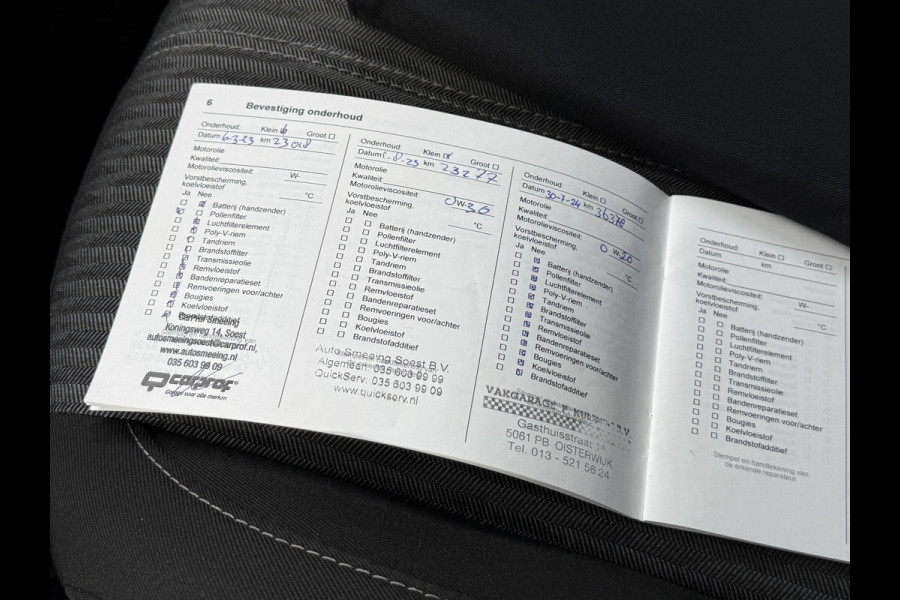 6 Bevestiging onderhoud
Onderhoud: Klein Groot
Datum 6-3-23 km 23018
Motorolie
Kwaliteit:
Motorolieviscositeit: W-
Vorstbescherming, koelvloeistof °C
Ja Nee
Batterij (handzender)
Pollenfilter
Luchtfilterelement
Poly-V-riem
Tandriem
Brandstoffilter
Transmissieolie
Remvloeistof
Bandenreparatieset
Remvoeringen voor/achter
Bougies
Koelvloeistof
CarProf Smeeing
Koningsweg 14, Soest
autosmeeingsoest@carprof.nl,
www.autosmeeing.nl
035 603 99 09
carprof
Garage voor alle merken
Onderhoud: Klein Groot
Datum 1.8.23 km 23277
Motorolie
Kwaliteit:
Motorolieviscositeit: 0W-30
Vorstbescherming,
koelvloeistof °C
Ja Nee
Batterij (handzender)
Pollenfilter
Luchtfilterelement
Poly-V-riem
Tandriem
Brandstoffilter
Transmissieolie
Remvloeistof
Bandenreparatieset
Remvoeringen voor/achter
Bougies
Koelvloeistof
Brandstofadditief
Auto Smeeing Soest B.V.
Algemeen: 035 603 99 99
QuickServ: 035 603 99 09
www.quickserv.nl
Onderhoud: Klein Groot
Datum 30-7-24 km 36378
Motorolie
Kwaliteit:
Motorolieviscositeit: 0 W-20
Vorstbescherming,
koelvloeistof °C
Ja Nee
Batterij (handzender)
Pollenfilter
Luchtfilterelement
Poly-V-riem
Tandriem
Brandstoffilter
Transmissieolie
Remvloeistof
Bandenreparatieset
Remvoeringen voor/achter
Bougies
Koelvloeistof
Brandstofadditief
VAKGARAGE
Gasthuisstraat
5061 PB OISTERWIJK
Tel. 013 - 521 56 24
Onderhoud: Klein Groot
Datum km
Motorolie
Kwaliteit:
Motorolieviscositeit: W-
Vorstbescherming,
koelvloeistof °C
Ja Nee
Batterij (handzender)
Pollenfilter
Luchtfilterelement
Poly-V-riem
Tandriem
Brandstoffilter
Transmissieolie
Remvloeistof
Bandenreparatieset
Remvoeringen voor/achter
Bougies
Koelvloeistof
Brandstofadditief
Stempel en handtekening van
de erkende reparateur